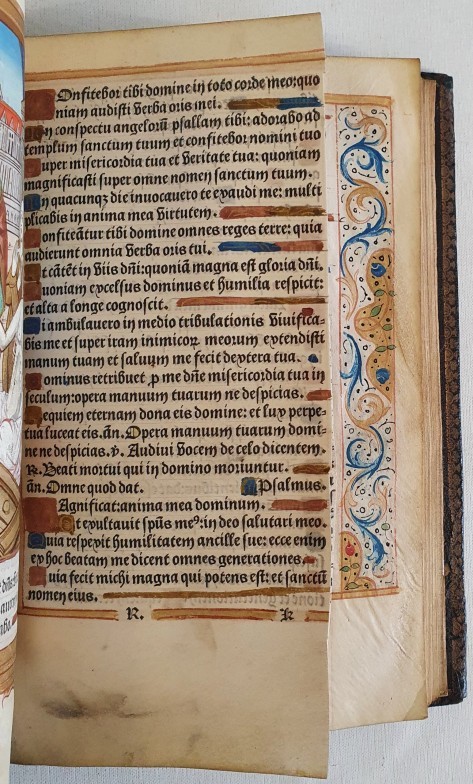 Onfitebor tibi domine in toto corde meo: quo
niam audisti verba oris mei.
n conspectu angeloꝝ psallam tibi: adorabo ad
templum sanctum tuum et confitebor nomini tuo
uper misericordia tua et veritate tua: quoniam
magnificasti super omne nomen sanctum tuum.
n quacunqꝫ die inuocauero te exaudi me: multi
plicabis in anima mea virtutem.
onfiteātur tibi domine omnes reges terre: quia
audierunt omnia verba oris tui.
t cātēt in viis dñi: quoniā magna est gloria dñi.
uoniam excelsus dominus et humilia respicit:
et alta a longe cognoscit.
i ambulauero in medio tribulationis viuifica-
bis me et super iram inimicoꝝ meorum extendisti
manum tuam et saluum me fecit dextera tua.
ominus retribuet ꝓ me dñe misericordia tua in
seculum: opera manuum tuarum ne despicias.
equiem eternam dona eis domine: et lux perpe-
tua luceat eis. añ. Opera manuum tuarum domi-
ne ne despicias. ꝟ. Audiui vocem de celo dicentem.
℞. Beati mortui qui in domino moriuntur.
añ. Omne quod dat. Psalmus.
Agnificat: anima mea dominum.
t exultauit spūs meꝰ: in deo salutari meo.
uia respexit humilitatem ancille sue: ecce enim
ex hoc beatam me dicent omnes generationes.
uia fecit michi magna qui potens est: et sanctū
nomen eius.
R.